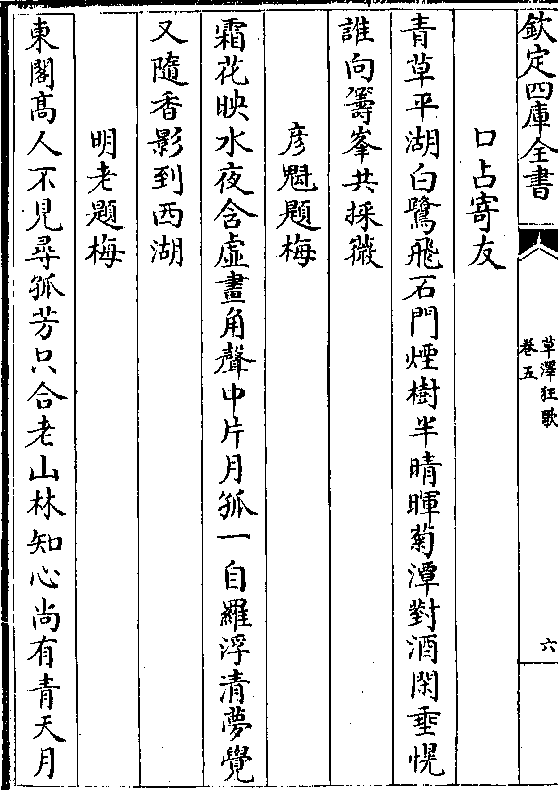 欽定四庫全書
草澤狂歌
卷五
六
口占寄友
青草平湖白鷺飛石門煙樹半晴暉菊潭對酒閑垂幌
誰向籌峯共採薇
彦魁題梅
霜花映水夜含虛畫角聲中片月孤一自羅浮清夢覺
又隨香影到西湖
明老題梅
東閣高人不見尋孤芳只合老山林知心尚有青天月